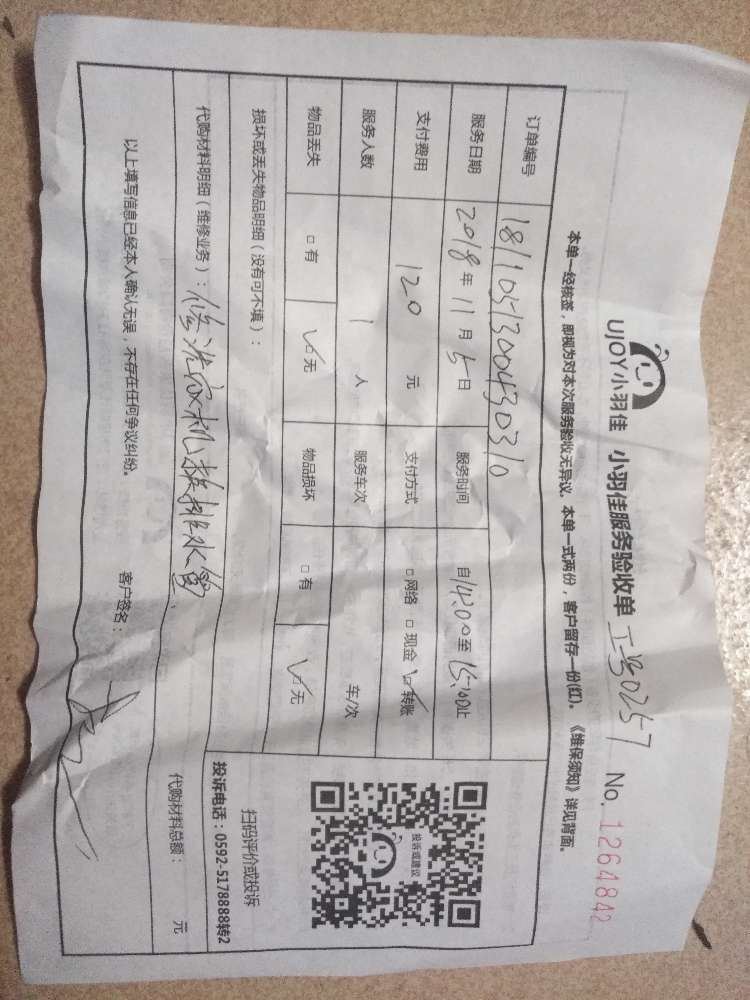 UJOY小羽佳 小羽佳服务验收单 工号0257 No. 1264842
本单一经核签，即视为对本次服务验收无异议。本单一式两份，客户留存一份(红)。《维保须知》详见背面。
订单编号 1811051300430310
服务日期 2018年11月5日 服务时间 自14:00至15:00止
支付费用 120元 支付方式 □网络 □现金 ☑转账
服务人数 1人 服务车次 车/次
物品丢失 □有 ☑无 物品损坏 □有 ☑无
损坏或丢失物品明细（没有可不填）：
代购材料明细（维修业务）：修洗衣机换排水管 代购材料总额： 元
以上填写信息已经本人确认无误，不存在任何争议纠纷。 客户签名：
投诉或建议
扫码评价或投诉
投诉电话：0592-5178888转2